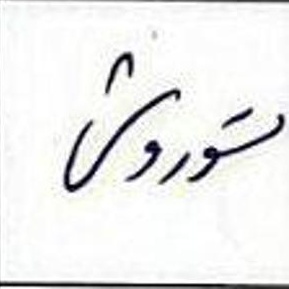 ستوروش